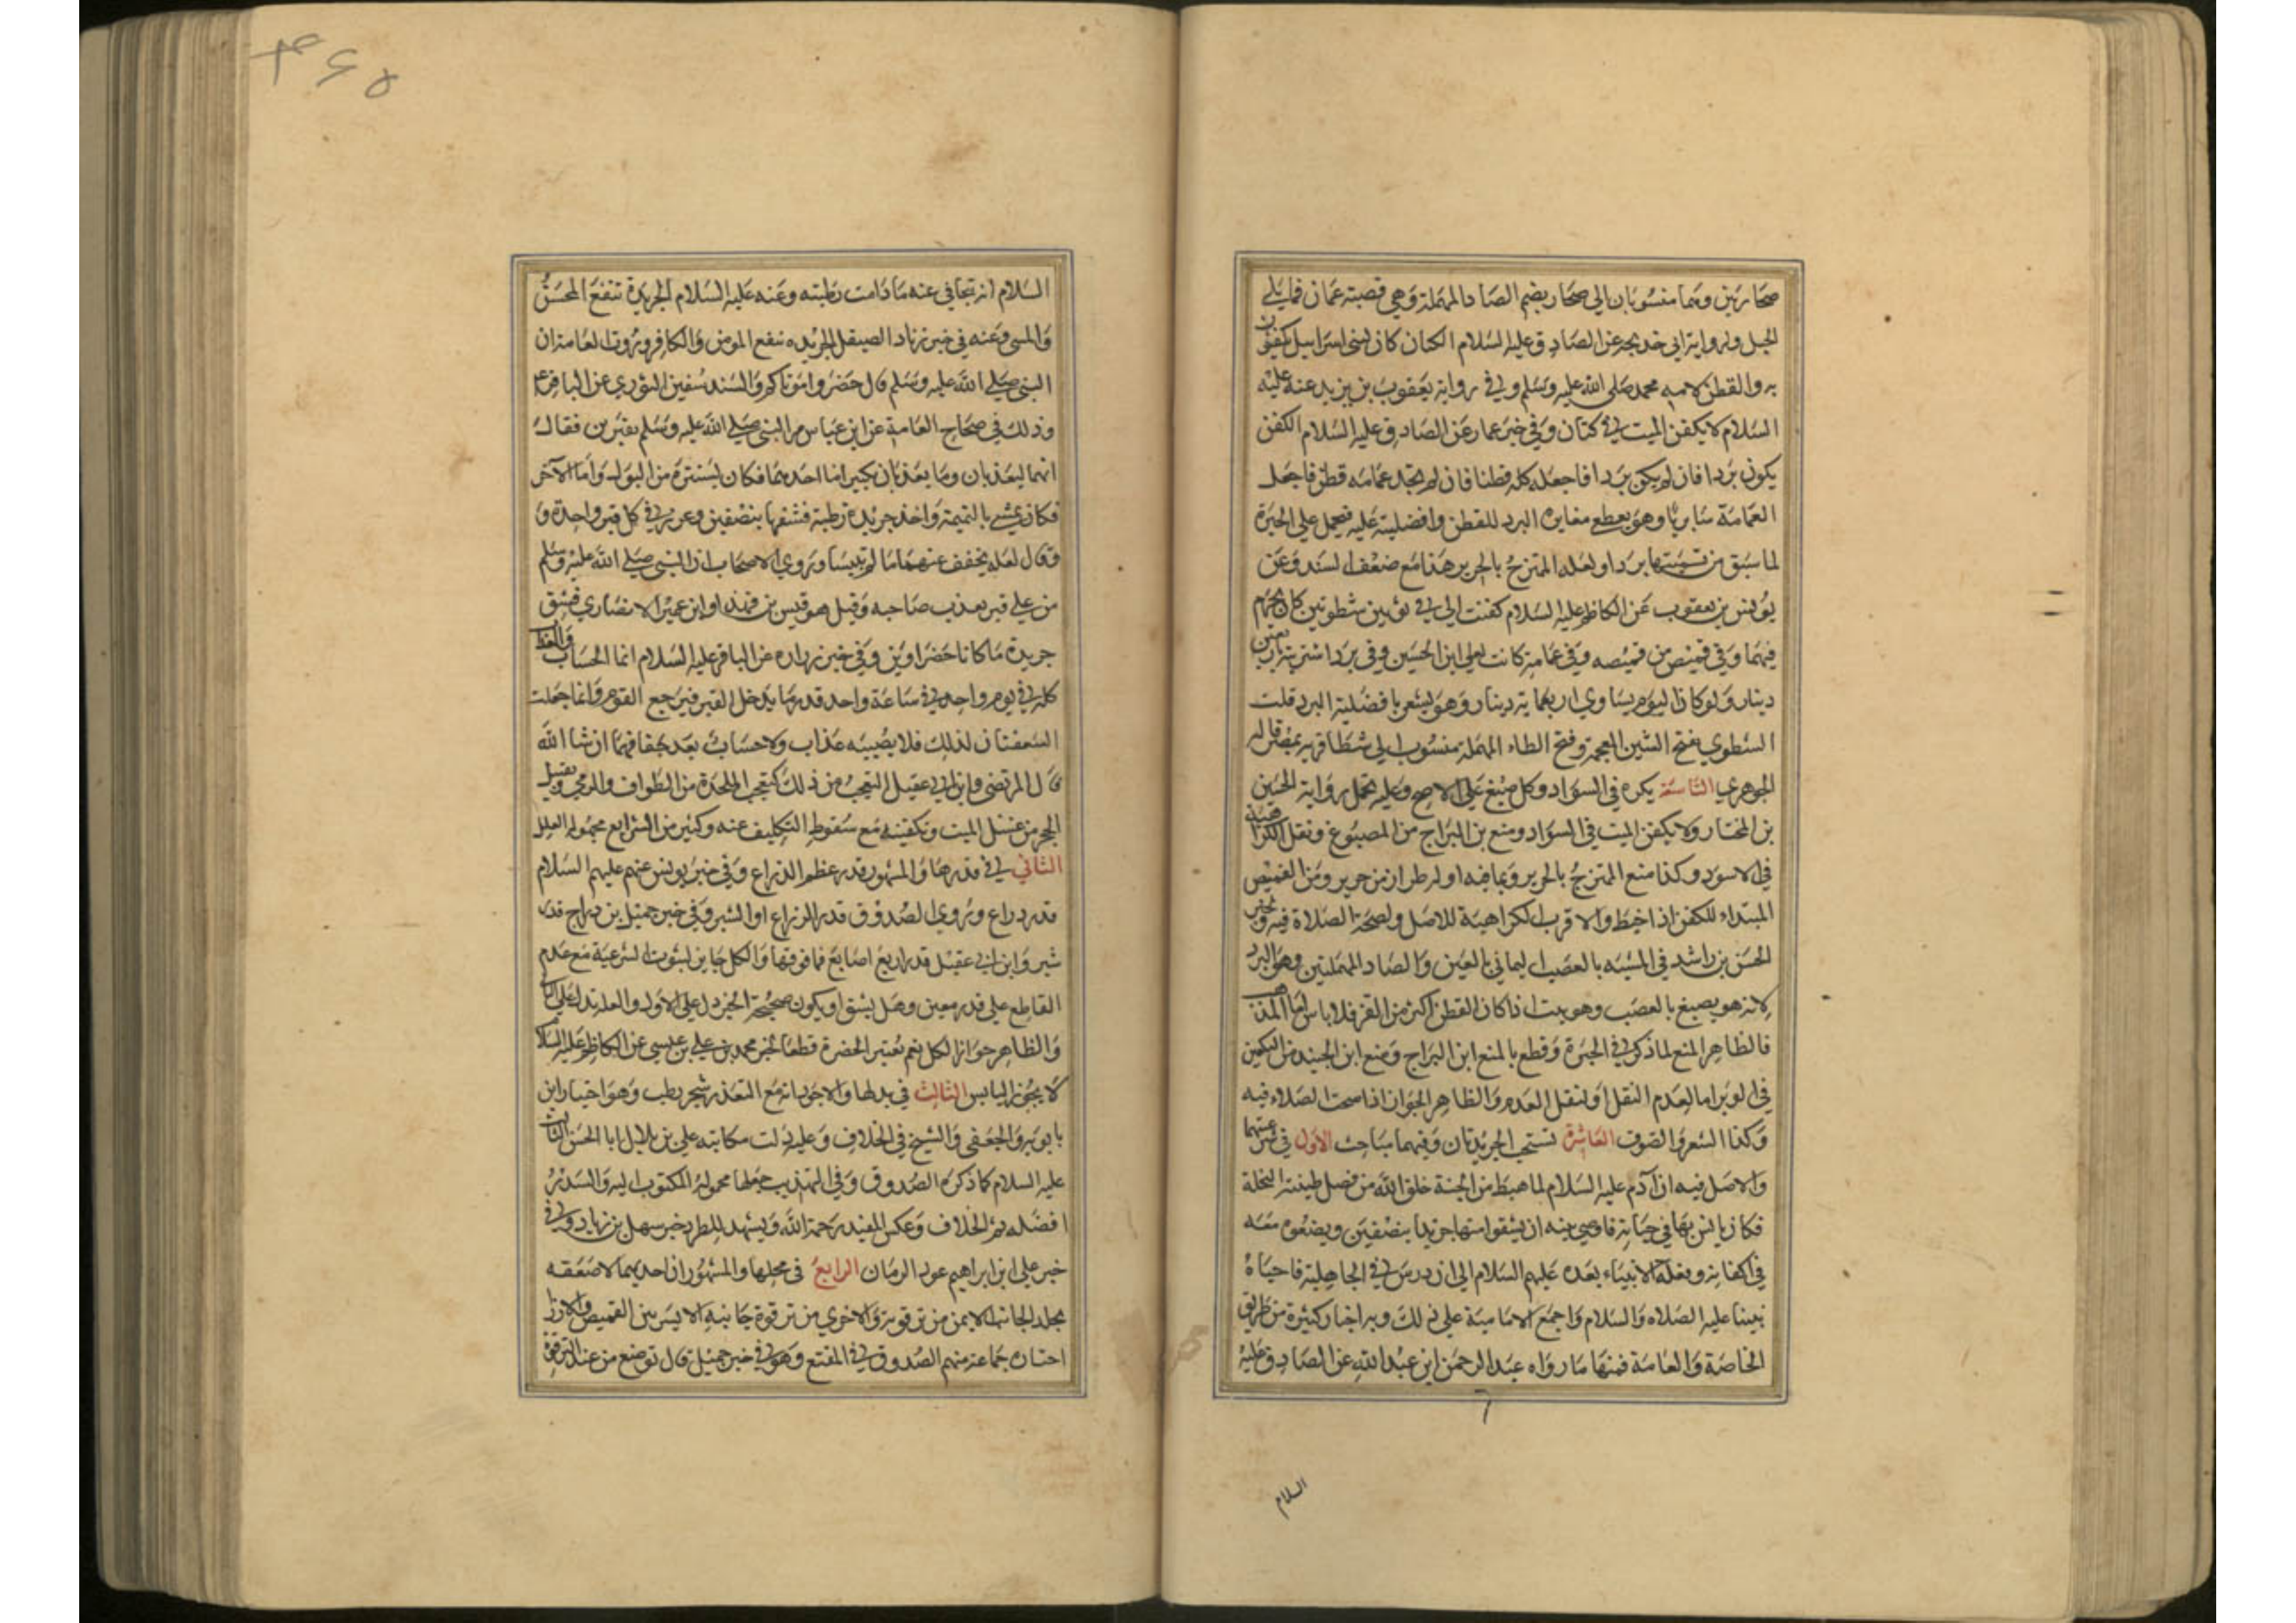 صحاريين وهما منسوبان الى صحار بضم الصاد المهملة وهي قصبة عمان فما يلي
الجبل ولرواية ابي خديجة عن الصادق عليه السلام الكتان كان لبني اسراييل يكفنون
به والقطن لامة محمد صلى الله عليه وسلم وفي رواية يعقوب بن يزيد عنه عليه
السلام لا يكفن الميت في كتان وفي خبر عمار عن الصادق عليه السلام الكفن
يكون بردا فان لم يكن بردا فاجعله كله قطنا فان لم تجد عمامه قطن فاجعل
العمامة سابريا وهو يعطي مغايرة البرد للقطن وافضليته عليه فيحمل على الحبرة
لما سبق من تسميتها بردا ولعله الممتزج بالحرير هذا مع ضعف السند وعن
يونس بن يعقوب عن الكاظم عليه السلام كفنت ابي في ثوبين شطويين كان يحرم
فيهما وفي قميص من قميصه وفي عمامة كانت لعلي ابن الحسين وفي برد اشتريته باربعين
دينار ولو كان اليوم يساوي اربعماية دينار وهو يشعر بافضلية البرد قلت
الشطوي بفتح الشين المعجمة وفتح الطاء المهملة منسوب الى شطا قرية بمصر قاله
الجوهري التاسعة يكره في السواد وكل صبغ على الاصح وعليه تحمل رواية الحسين
بن المختار ولا يكفن الميت في السواد ومنع بن البراج من المصبوغ ونقل الكراهية
في الاسود وكذا منع الممتزج بالحرير وبما فيه او له طراز من حرير ومن القميص
المبتداء للكفن اذا خيط والاقرب الكراهية للاصل ولصحة الصلاة فيه وخبر
الحسن بن راشد في المشبه بالعصب اليماني بالعين والصاد المهملتين وهو البرد
لانه هو يصبغ بالعصب وهو نبت اذا كان القطن اكثر من القز فلا باس اما المذهب
فالظاهر المنع لما ذكر في الحبرة وقطع بالمنع ابن البراج ومنع ابن الجنيد من التكفين
في الوبر اما لعدم النقل او لنقل العدم والظاهر الجواز اذا صحت الصلاه فيه
وكذا الشعر والصوف العاشرة تستحب الجريدتان وفيهما مباحث الاول في شرعيتهما
والاصل فيه ان آدم عليه السلام لما هبط من الجنة خلق الله من فضل طينته النخلة
فكان يانس بها في حياته فاوصى بنيه ان يشقوا منها جريدا بنصفين ويضعوه معه
في اكفانه وفعله الانبياء بعده عليهم السلام الى ان درس في الجاهلية فاحياه
نبينا عليه الصلاه والسلام واجمع الامامية على ذلك وبه اخبار كثيرة من طريق
الخاصة والعامة فمنها ما رواه عبد الرحمن ابن عبد الله عن الصادق عليه
السلام
السلام انه يتجافى عنه ما دامت رطبته وعنه عليه السلام الجريدة تنفع المحسن
والمسي وعنه في خبر زياد الصيقل الجريده تنفع المومن والكافر وروت العامة ان
النبي صلى الله عليه وسلم قال خضروا موتاكم والسند سفين الثوري عن الباقر ع
وذلك في صحاح العامة عن ابن عباس مر النبي صلى الله عليه وسلم بقبرين فقال
انهما ليعذبان وما يعذبان بكبير اما احدهما فكان لا يستتره من البول واما الآخر
فكان يمشي بالنميمة واخذ جريدة رطبة فشقها بنصفين وغرز في كل قبر واحدة و
وقال لعله يخفف عنهما ما لم تيبسا وروي الاصحاب ان النبي صلى الله عليه وسلم
مر على قبر يعذب صاحبه وقيل هو قيس بن فهد او ابن عمير الانصاري فشق
جريدة ما كانا خضراوين وفي خبر زراره عن الباقر عليه السلام انما الحساب والعذاب
كله في يوم واحد في ساعة واحد قدر ما يدخل القبر فيرجع القوم وانما جعلت
السعفتان لذلك فلا يصيبه عذاب ولا حساب بعد جفافهما ان شا الله
قال المرتضى وابن ابي عقيل التعجب من ذلك كتعجب الملحدة من الطواف والرمي وتقبيل
الحجر من غسل الميت وتكفينه مع سقوط التكليف عنه وكثير من الشرايع مجهولة العلل
الثاني في قدرها والمشهور قدر عظم الذراع وفي خبر يونس عنهم عليهم السلام
قدر ذراع وروي الصدوق قدر الذراع او الشبر وفي خبر جميل بن دراج قدر
شبر وابن ابي عقيل قدر اربع اصابع فما فوقها والكل جايز لثبوت الشرعية مع عدم
القاطع على قدر معين وهل يشق او يكون صحيحة الخبر دل على الاول والعلة تدل على
والظاهر جواز الكل نعم تعتبر الخضرة قطعا لخبر محمد بن علي بن عيسى عن الكاظم عليه السلام
لا يجوز اليابس الثالث في بدلها والاجود انه مع التعذر شجر رطب وهو اختيار ابن
بابويه والجعفي والشيخ في الخلاف وعليه دلت مكاتبة علي بن بلال ابا الحسن الثالث
عليه السلام كما ذكره الصدوق وفي التهذيب جعلها مجهولة المكتوب اليه والسدر
افضله ثم الخلاف وعكس المفيد رحمة الله ويشهد للطرد خبر سهل بن زياد وفي
خبر علي ابن ابراهيم عود الرمان الرابع في محلها والمشهور ان احديهما لاصقه
بجلد الجانب الايمن من ترقوته والاخرى من ترقوة جانبه الايسر بين القميص والازار
اختاره جماعة منهم الصدوق في المقنع وهو في خبر جميل قال توضع من عند الترقوة